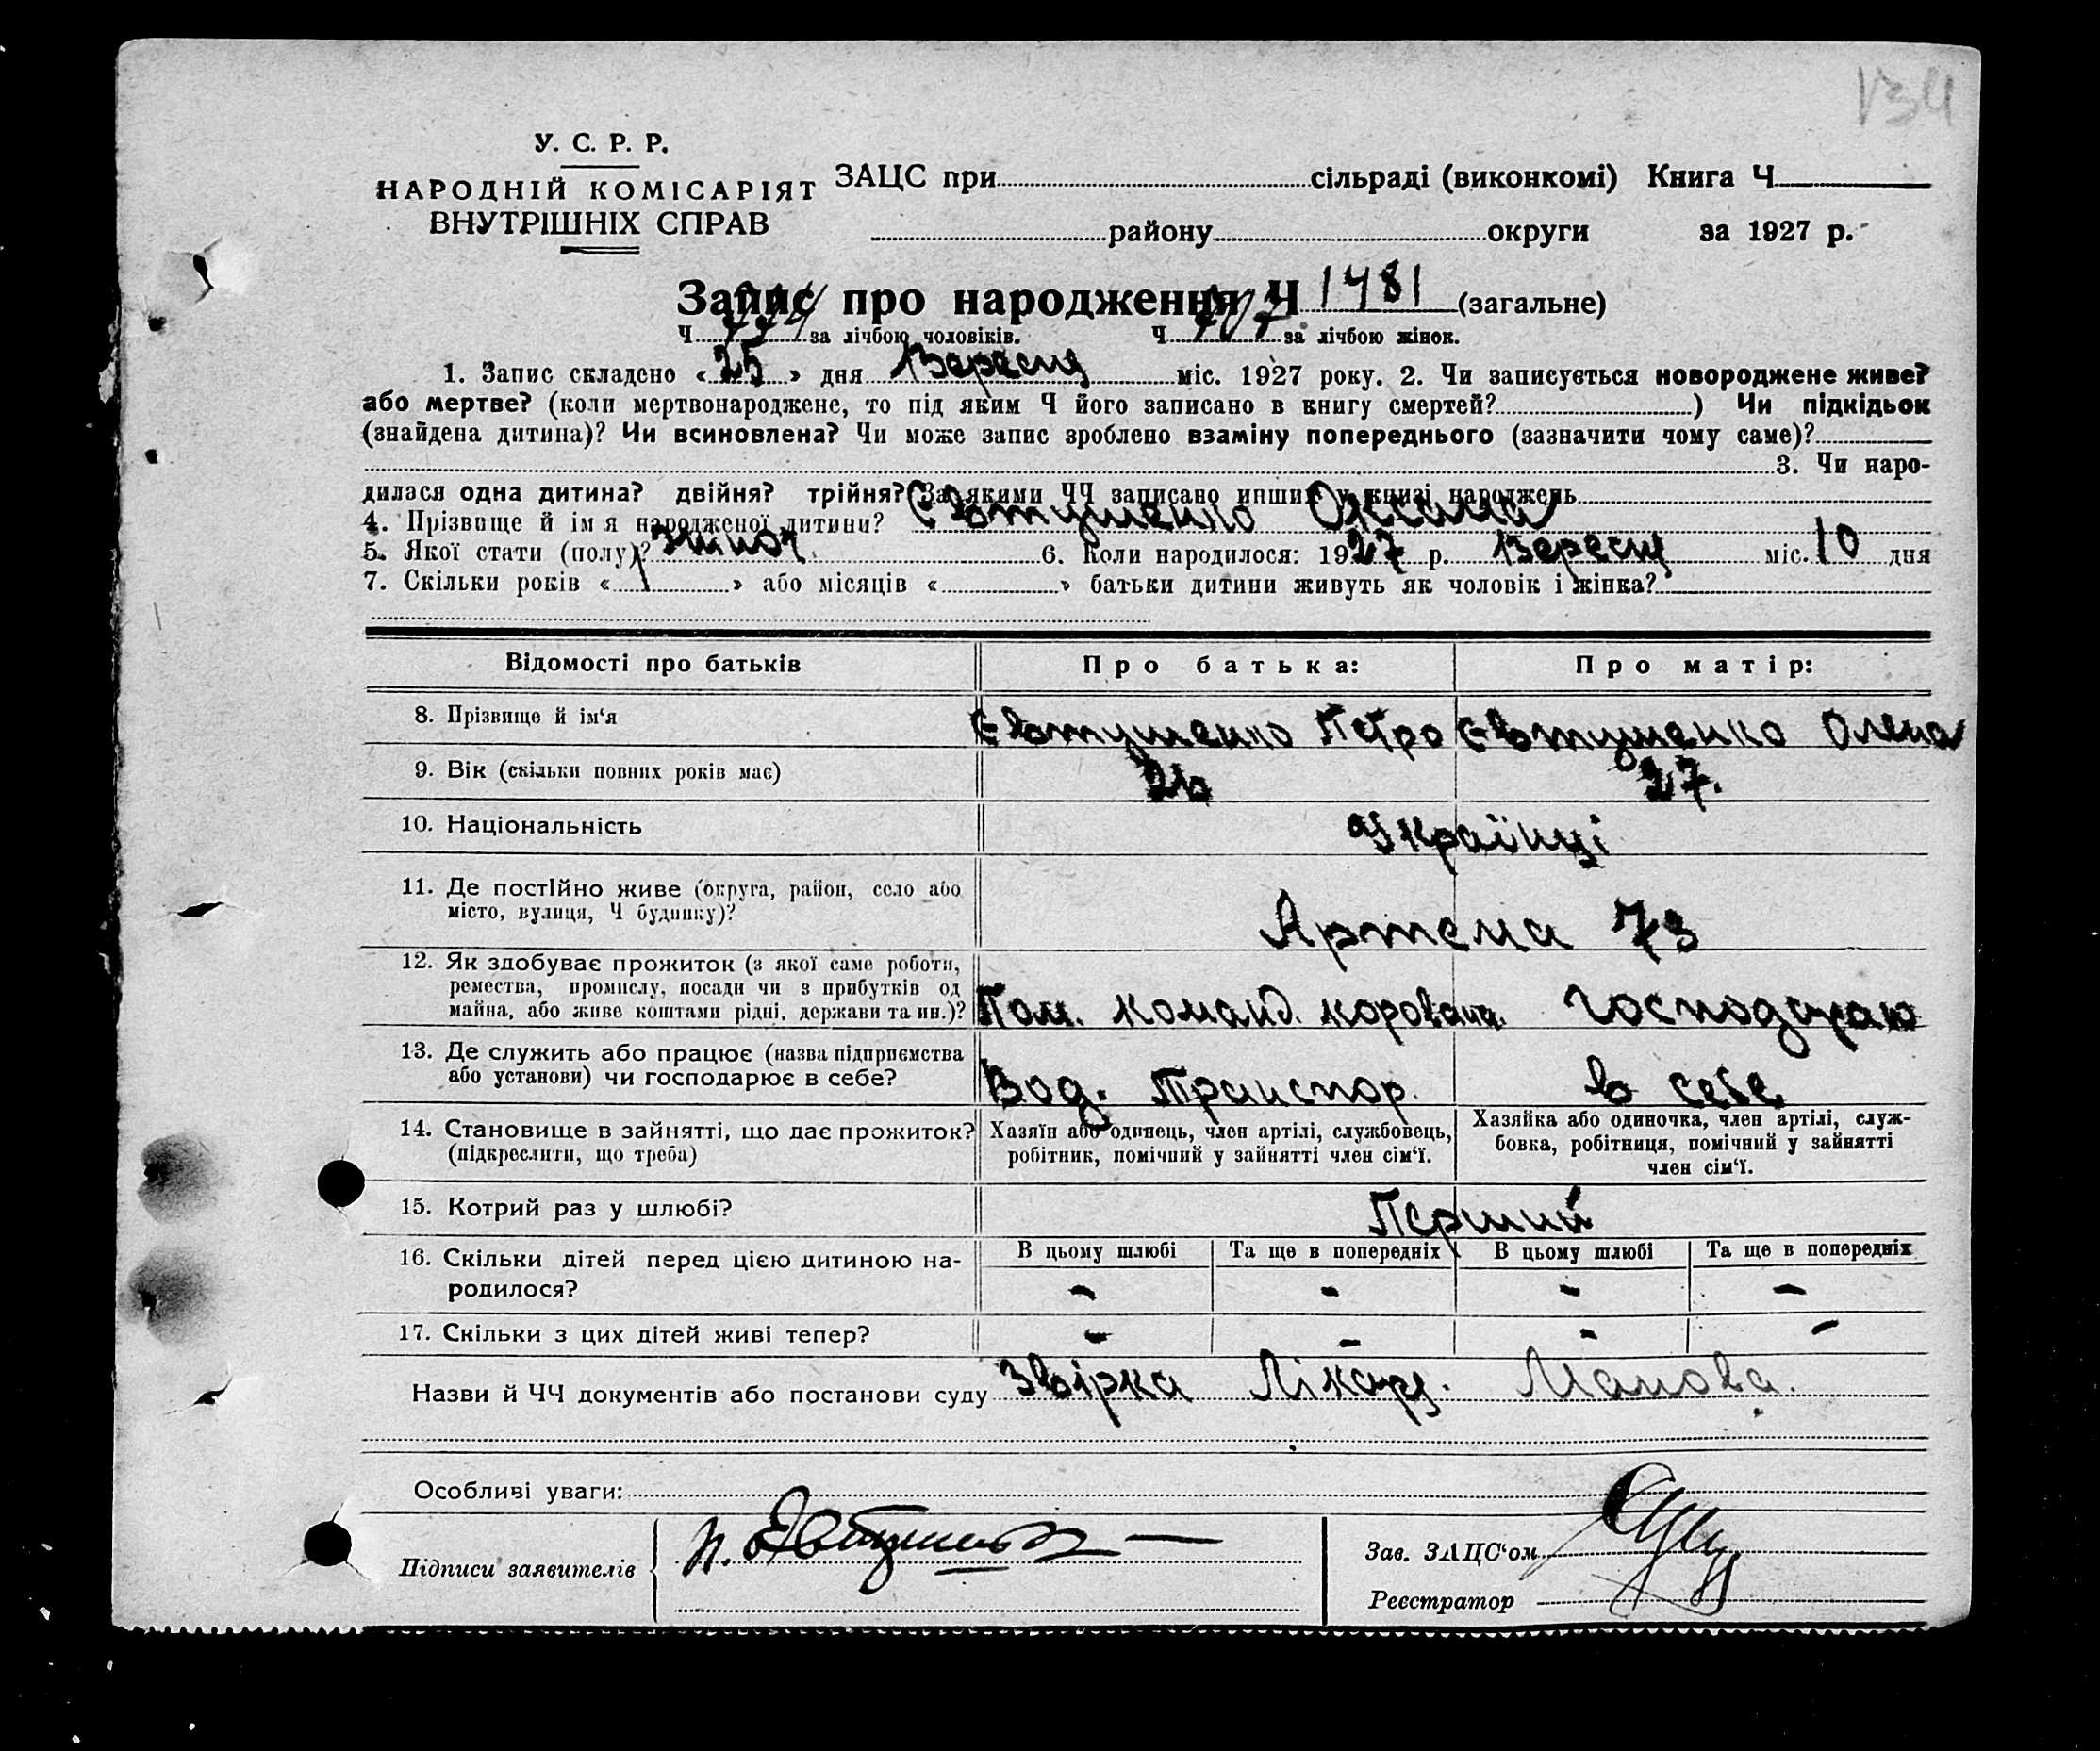 134
У. С. Р. Р.
НАРОДНІЙ КОМІСАРІЯТ
ВНУТРІШНІХ СПРАВ
ЗАЦС при сільраді (виконкомі) Книга Ч
району округи за 1927 р.
Запис про народження Ч 1481 (загальне)
Ч за лічбою чоловіків. Ч 707 за лічбою жінок.
1. Запис складено « 25 » дня Вересня міс. 1927 року. 2. Чи записується новороджене живе?
або мертве? (коли мертвонароджене, то під яким Ч його записано в книгу смертей? ) Чи підкідьок
(знайдена дитина)? Чи всиновлена? Чи може запис зроблено взаміну попереднього (зазначити чому саме)?
3. Чи наро-
дилася одна дитина? двійня? трійня? За якими ЧЧ записано инших у книзі народжень
4. Прізвище й ім я народженої дитини? Євтушенко Оксана
5. Якої стати (полу)? жіноч. 6. Коли народилося: 1927 р. Вересня міс. 10 дня
7. Скільки років « 1 » або місяців « » батьки дитини живуть як чоловік і жінка?
Відомості про батьків Про батька: Про матір:
8. Прізвище й ім'я Євтушенко Петро Євтушенко Олена
9. Вік (скільки повних років має) 26 27.
10. Національність Українці
11. Де постійно живе (округа, район, село або
місто, вулиця, Ч будинку)? Артема 73
12. Як здобуває прожиток (з якої саме роботи,
ремества, промислу, посади чи з прибутків од
майна, або живе коштами рідні, держави та ин.)? Пом. команд. корована. господарю
13. Де служить або працює (назва підприємства
або установи) чи господарює в себе? Вод. Транспор. в себе
14. Становище в зайнятті, що дає прожиток?
(підкреслити, що треба)
Хазяїн або одинець, член артілі, службовець,
робітник, помічний у зайнятті член сім'ї.
Хазяйка або одиночка, член артілі, служ-
бовка, робітниця, помічний у зайнятті
член сім'ї.
15. Котрий раз у шлюбі? Перший
16. Скільки дітей перед цією дитиною на-
родилося?
В цьому шлюбі Та ще в попередніх В цьому шлюбі Та ще в попередніх
- - - -
17. Скільки з цих дітей живі тепер? - - - -
Назви й ЧЧ документів або постанови суду Звірка Лікаря.
Особливі уваги:
Підписи заявителів П. Євтушенко
Зав. ЗАЦС'ом
Реєстратор